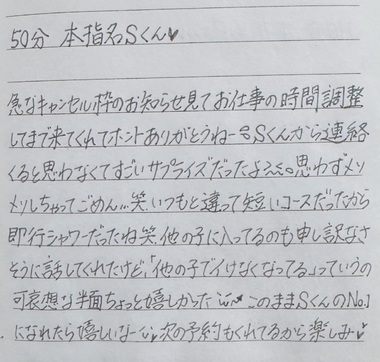 50分 本指名Sくん♥
急なキャンセル枠のお知らせ見てお仕事の時間調整
してまで来てくれてホントありがとうねー Sくんから連絡
くると思わなくてすごいサプライズだったよ 思わずメソ
メソしちゃってごめん,,,笑 いつもと違って短いコースだったから
即行シャワーだったね笑 他の子に入ってるのも申し訳なさ
そうに話してくれたけど、「他の子でイけなくなってる」っていうの
可哀想な半面ちょっと嬉しかった このままSくんのNo.1
になれたら嬉しいなー 次の予約もくれてるから楽しみ♥